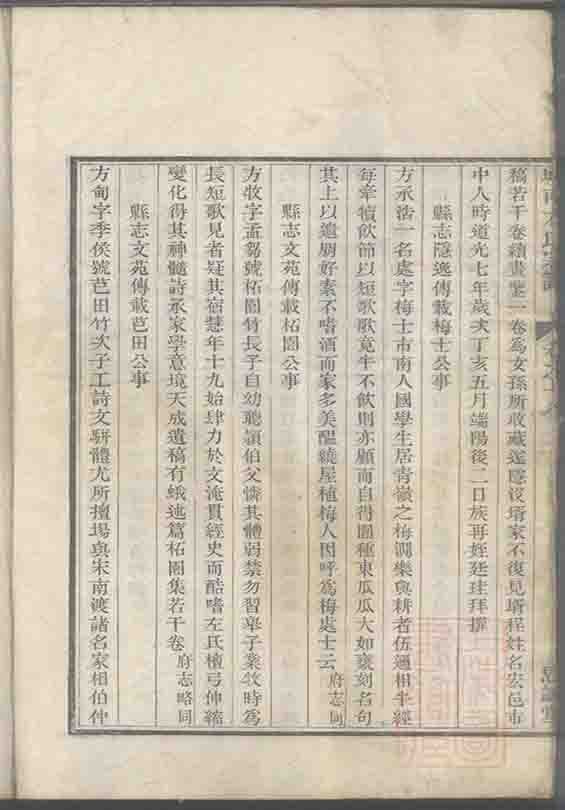 稿若干卷續畫鑒一卷為女孫所收藏遂隱沒壻家不復見壻程姓名宏邑市
中人時道光七年歲次丁亥五月端陽後二日族再姪廷珪拜撰
縣志隱逸傳載梅士公事
方承浩一名處字梅士市南人國學生居青嶺之梅澗樂與耕者伍遇相半經
每牽犢飲節以短歌歌竟牛不飲則亦顧而自得園種東瓜瓜大如甕刻名句
其上以遺朋好素不嗜酒而家多美醞繞屋植梅人因呼為梅處士云府志同
縣志文苑傳載柘園公事
方牧字孟芻號柘園竹長子自幼聰頴伯父憐其體弱禁勿習舉子業牧時為
長短歌見者疑其宿慧年十九始肆力於文淹貫經史而酷嗜左氏檀弓伸縮
變化得其神髓詩承家學意境天成遺稿有蛾述篇柘園集若干卷府志略同
縣志文苑傳載芭田公事
方甸字季侯號芭田竹次子工詩文駢體尤所擅場與宋南渡諸名家相伯仲